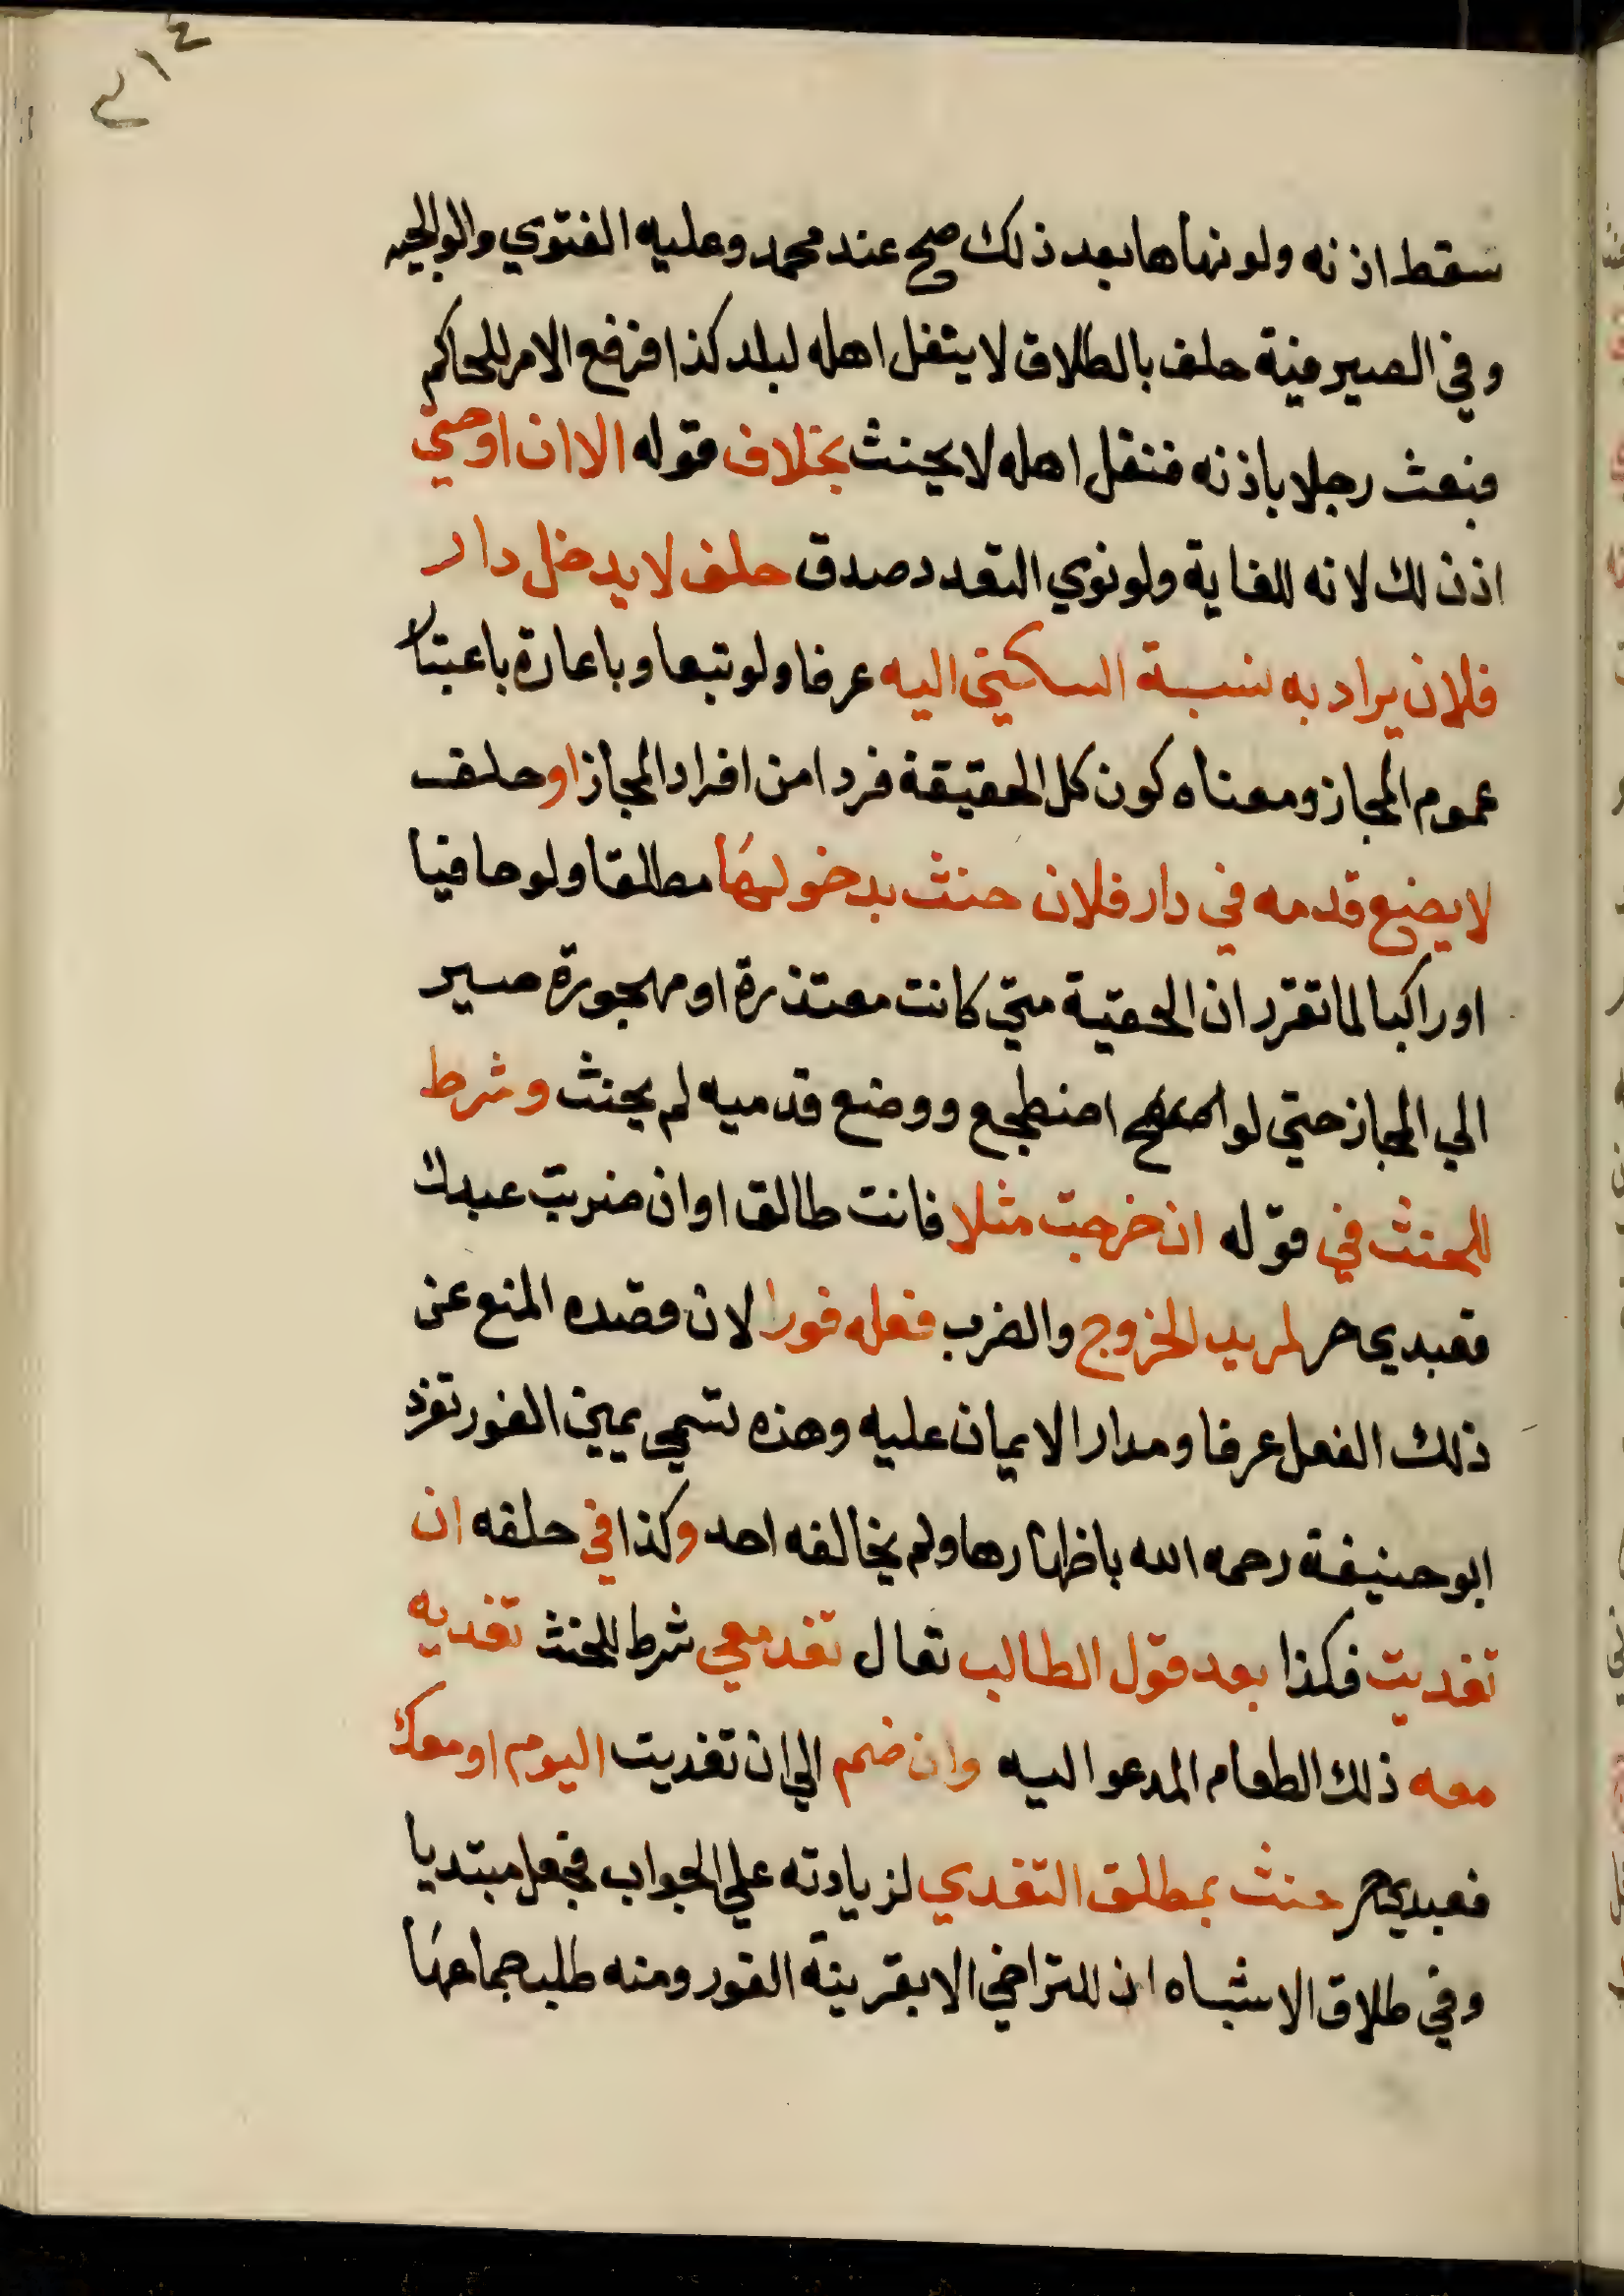 ٢١٤
سقط اذنه ولو نهاها بعد ذلك صح عند محمد وعليه الفتوي والوالجيه
وفي الصيرفية حلف بالطلاق لا ينقل اهله لبلد كذا فرفع الامر للحاكم
فبعث رجلا باذنه فنقل اهله لا يحنث بخلاف قوله الا ان او حتي
اذن لك لانه للغاية ولو نوي التعدد صدق حلف لا يدخل دار
فلان يراد به نسبة السكني اليه عرفا ولو تبعا وباعارة باعتبار
عموم المجاز ومعناه كون كل الحقيقة فردا من افراد المجاز او حلف
لا يضع قدمه في دار فلان حنث بدخولها مطلقا ولو حافيا
او راكبا لما تقرر ان الحقية متي كانت معتذرة او مهجورة صير
الي المجاز حتي لو اضطجع ووضع قدميه لم يحنث وشرط
للحنث في قوله ان خرجت مثلا فانت طالق او ان ضربت عبدك
فعبدي حر لمريد الخروج والضرب فعله فورا لان قصده المنع عن
ذلك الفعل عرفا ومدار الايمان عليه وهذه تسمي يمين الفور تفرد
ابو حنيفة رحمه الله باظهارها ولم يخالفه احد وكذا في حلفه ان
تغديت فكذا بعد قول الطالب تعال تغد معي شرط للحنث تغديه
معه ذلك الطعام المدعو اليه وان ضم الي ان تغديت اليوم او معك
فعبدي حر حنث بمطلق التغدي لزيادته علي الجواب فجعل مبتديا
وفي طلاق الاشباه ان للتراخي الا بقرينة الفور ومنه طلب جماعها